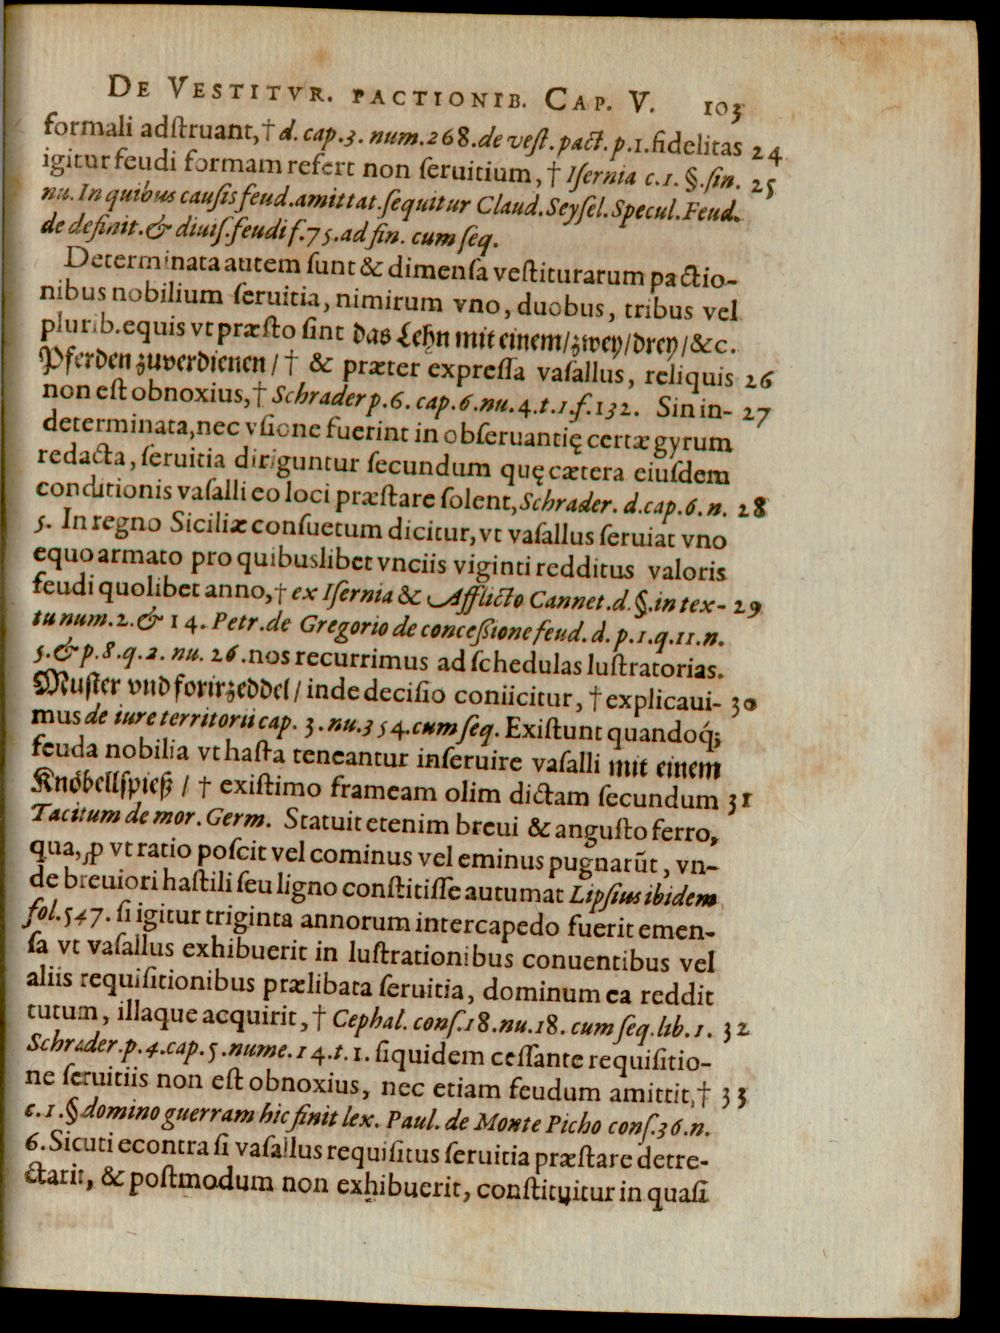 DE VESTITVR. PACTIONIB. CAP. V. 103
formali adſtruant, † d. cap. 3. num. 268. de veſt. pact. p. 1. fidelitas 24
igitur feudi formam refert non ſeruitium, † Iſernia c. 1. §. fin. 25
nu. In quibus cauſis feud. amittat. ſequitur Claud. Seyſel. Specul. Feud.
de definit. & diuiſ. feudi f. 75. ad fin. cum ſeq.
Determinata autem ſunt & dimenſa veſtiturarum pactio-
nibus nobilium ſeruitia, nimirum vno, duobus, tribus vel
plurib. equis vt præſto ſint das Lehn mit einem/ zwey/ drey/ &c.
Pferden zuverdienen/ † & præter expreſſa vaſallus, reliquis 26
non eſt obnoxius, † Schrader p. 6. cap. 6. nu. 4. t. 1. f. 132. Sin in- 27
determinata, nec vſione fuerint in obſeruantię certæ gyrum
redacta, ſeruitia diriguntur ſecundum quę cætera eiuſdem
conditionis vaſalli eo loci præſtare ſolent, Schrader. d. cap. 6. n. 28
5. In regno Siciliæ conſuetum dicitur, vt vaſallus ſeruiat vno
equo armato pro quibuslibet vnciis viginti redditus valoris
feudi quolibet anno, † ex Iſernia & Afflicto Cannet. d. §. in tex- 29
tu num. 2. & 14. Petr. de Gregorio de conceßione feud. d. p. 1. q. 11. n.
5. & p. 8. q. 2. nu. 26. nos recurrimus ad ſchedulas luſtratorias.
Muſter vnd forirzeddel/ inde deciſio coniicitur, † explicaui- 30
mus de iure territorii cap. 3. nu. 354. cum ſeq. Exiſtunt quandoq́;
feuda nobilia vt haſta teneantur inſeruire vaſalli mit einem
Knöbellſpieß/ † exiſtimo frameam olim dictam ſecundum 31
Tacitum de mor. Germ. Statuit etenim breui & anguſto ferro,
qua, ꝓ vt ratio poſcit vel cominus vel eminus pugnarūt, vn-
de breuiori haſtili ſeu ligno conſtitiſſe autumat Lipſius ibidem
fol. 547. ſi igitur triginta annorum intercapedo fuerit emen-
ſa vt vaſallus exhibuerit in luſtrationibus conuentibus vel
aliis requiſitionibus prælibata ſeruitia, dominum ea reddit
tutum, illaque acquirit, † Cephal. conſ. 18. nu. 18. cum ſeq. lib. 1. 32
Schrader. p. 4. cap. 5. nume. 14. t. 1. ſiquidem ceſſante requiſitio-
ne ſeruitiis non eſt obnoxius, nec etiam feudum amittit, † 33
c. 1. § domino guerram hic finit lex. Paul. de Monte Picho conſ. 36. n.
6. Sicuti econtra ſi vaſallus requiſitus ſeruitia præſtare detre-
ctarit, & poſtmodum non exhibuerit, conſtituitur in quaſi